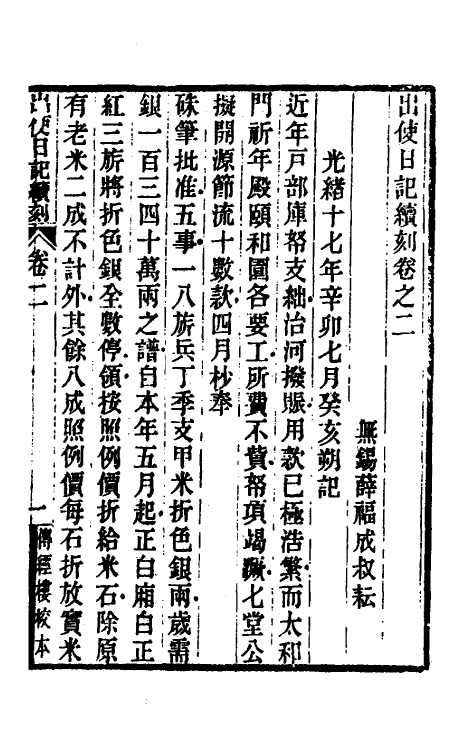 出使日記續刻卷之二
無錫薛福成叔耘
光緖十七年辛卯七月癸亥朔記
近年戸部庫帑支絀治河撥賑用款已極浩繁而太和
門祈年殿頤和園各要工所費不貲帑項竭蹶七堂公
擬開源節流十數款四月杪奉
硃筆批准五事一八旂兵丁季支甲米折色銀兩歲需
銀一百三四十萬兩之譜自本年五月起正白廂白正
紅三旂將折色銀全數停領按照例價折給米石除原
有老米二成不計外其餘八成照例價每石折放實米
出使日記續刻 卷二 一 傳經樓校本